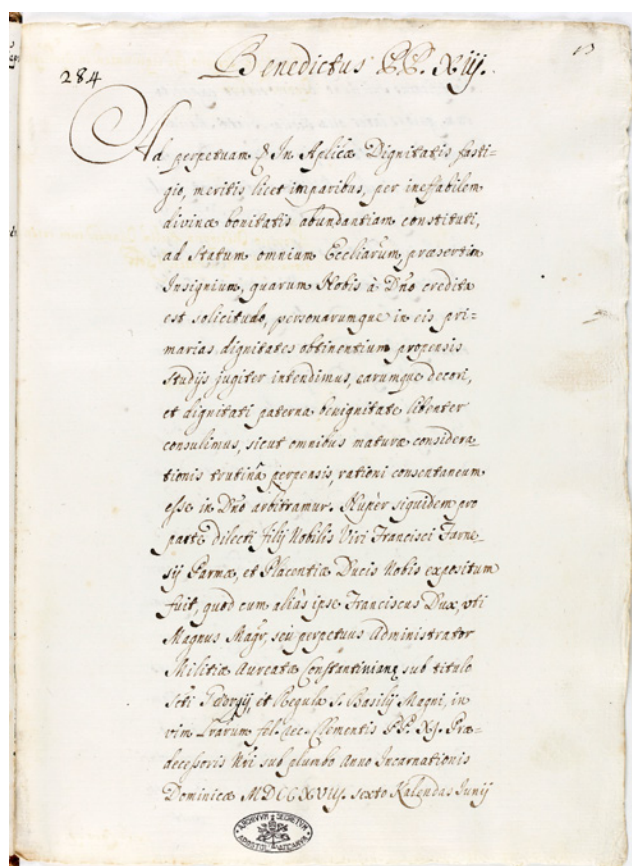 13
284
Benedictus PP. XIIJ.
Ad perpetuam & In Aplicæ Dignitatis fasti=
gio, meritis licet imparibus, per ineffabilem
divinæ bonitatis abundantiam constituti,
ad Statum omnium Eccliarum, præsertim
Insignium, quarum Nobis à Dño credita
est solicitudo, personarumque in eis pri=
marias dignitates obtinentium propensis
studijs jugiter intendimus, earumque decori,
et dignitati paterna benignitate libenter
consulimus, sicut omnibus maturæ considera_
tionis trutinâ perpensis, rationi consentaneum
esse in Dño arbitramur. Nupèr siquidem pro
parte dilecti filij Nobilis Viri Francisci Farne_
sij Parmæ, et Placentiæ Ducis Nobis expositum
fuit, quod cum aliàs ipse Franciscus Dux, uti
Magnus Magr, seù perpetuus Administrator
Militiæ Aureatæ Constantinianæ sub titulo
Scti Georgij, et Regula S. Basilij Magni, in
vim Lrarum fel. rec. Clementis PP. XJ. Præ=
decessoris Nri sub plumbo Anno Incarnationis
Dominicæ MDCCXVIIJ. sexto Kalendas Junij
ARCHIVVM SECRETVM APOSTOL VATICANVM